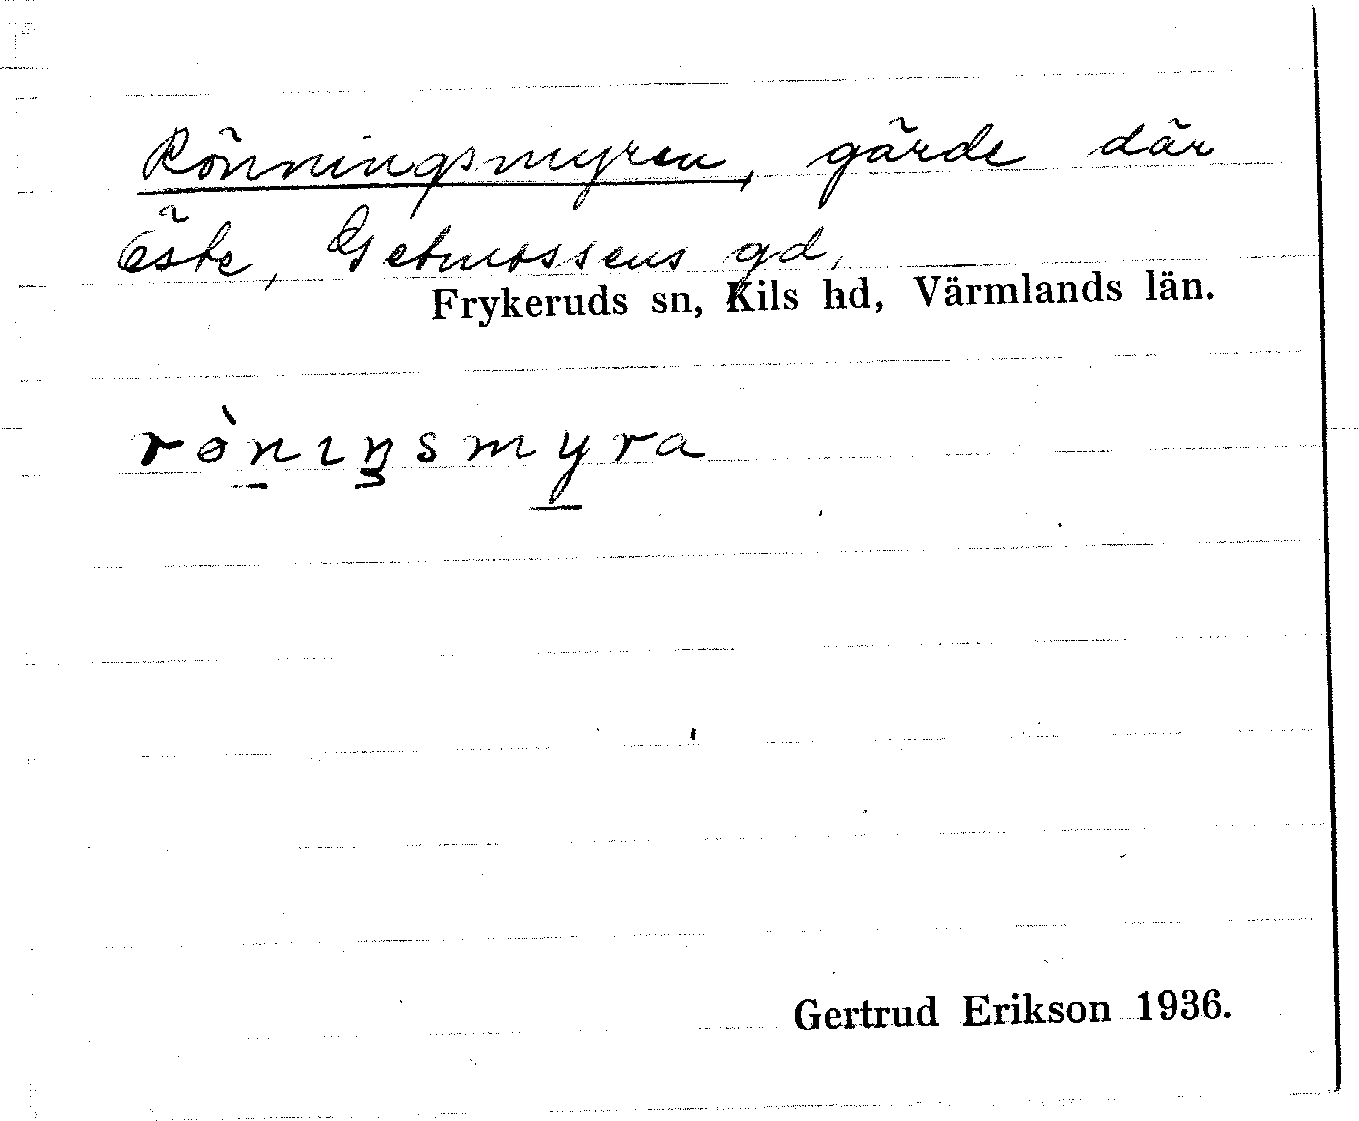 Rönningsmyren, gärde där
öste, Getmossens gd,
Frykeruds sn, Kils hd, Värmlands län.
rö̀nıŋsmyra
Gertrud Erikson 1936.